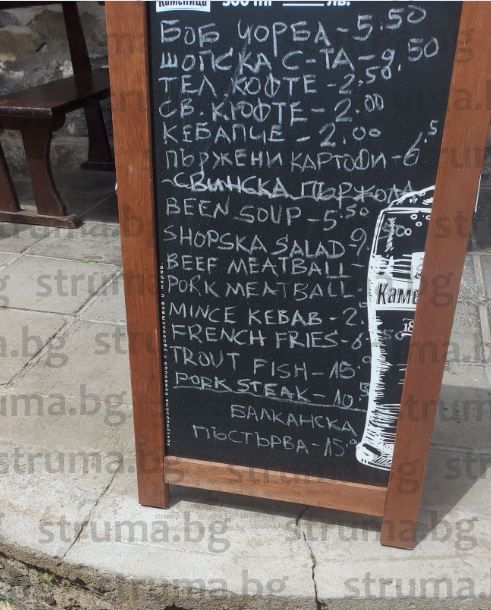 Каменица 500 ml лв.
БОБ ЧОРБА - 5.50
ШОПСКА С-ТА - 9.50
ТЕЛ. КОФТЕ - 2.50.
СВ. КЮФТЕ - 2.00
КЕБАПЧЕ - 2.00
ПЪРЖЕНИ КАРТОФИ - 6.5
СВИНСКА ПЪРЖОЛА
BEEN SOUP - 5.50
SHOPSKA SALAD - 9.50
BEEF MEATBALL -
PORK MEATBALL -
MINCE KEBAB - 2.
FRENCH FRIES - 6.50
TROUT FISH - 15.
PORK STEAK - 10.
БАЛКАНСКА
ПЪСТЪРВА - 15.
Каме
18
struma.bg